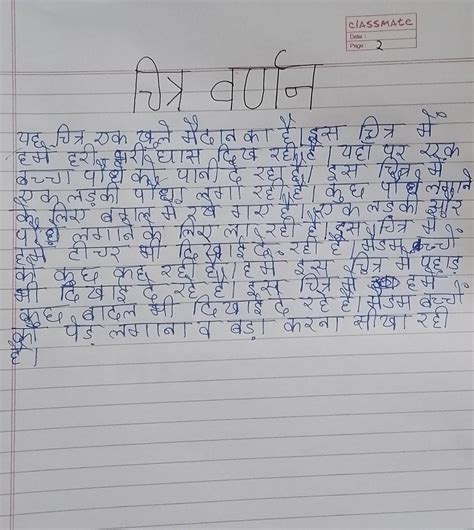 classmate
Date :
Page : 2
चित्र वर्णन
यह चित्र एक खुले मैदान का है। इस चित्र में
हमें हरी भरी घास दिख रही है। यहाँ पर एक
बच्चा पौधे को पानी दे रहा है। इस चित्र में
एक लड़की पौधा लगा रही है। कुछ पौधे लगाने
के लिए बगल में रखे गए है। एक लड़की और
पौधे लगाने के लिए ला रही है। इस चित्र में
हमें टीचर भी दिखाई दे रही है। मैडम बच्चों
को कुछ कह रही है। हमें इस चित्र में पहाड़
भी दिखाई दे रहे है। इस चित्र में हमें
कुछ बादल भी दिखाई दे रहे है। मैडम बच्चों
को पेड़ लगाना व बड़ा करना सीखा रही
है।